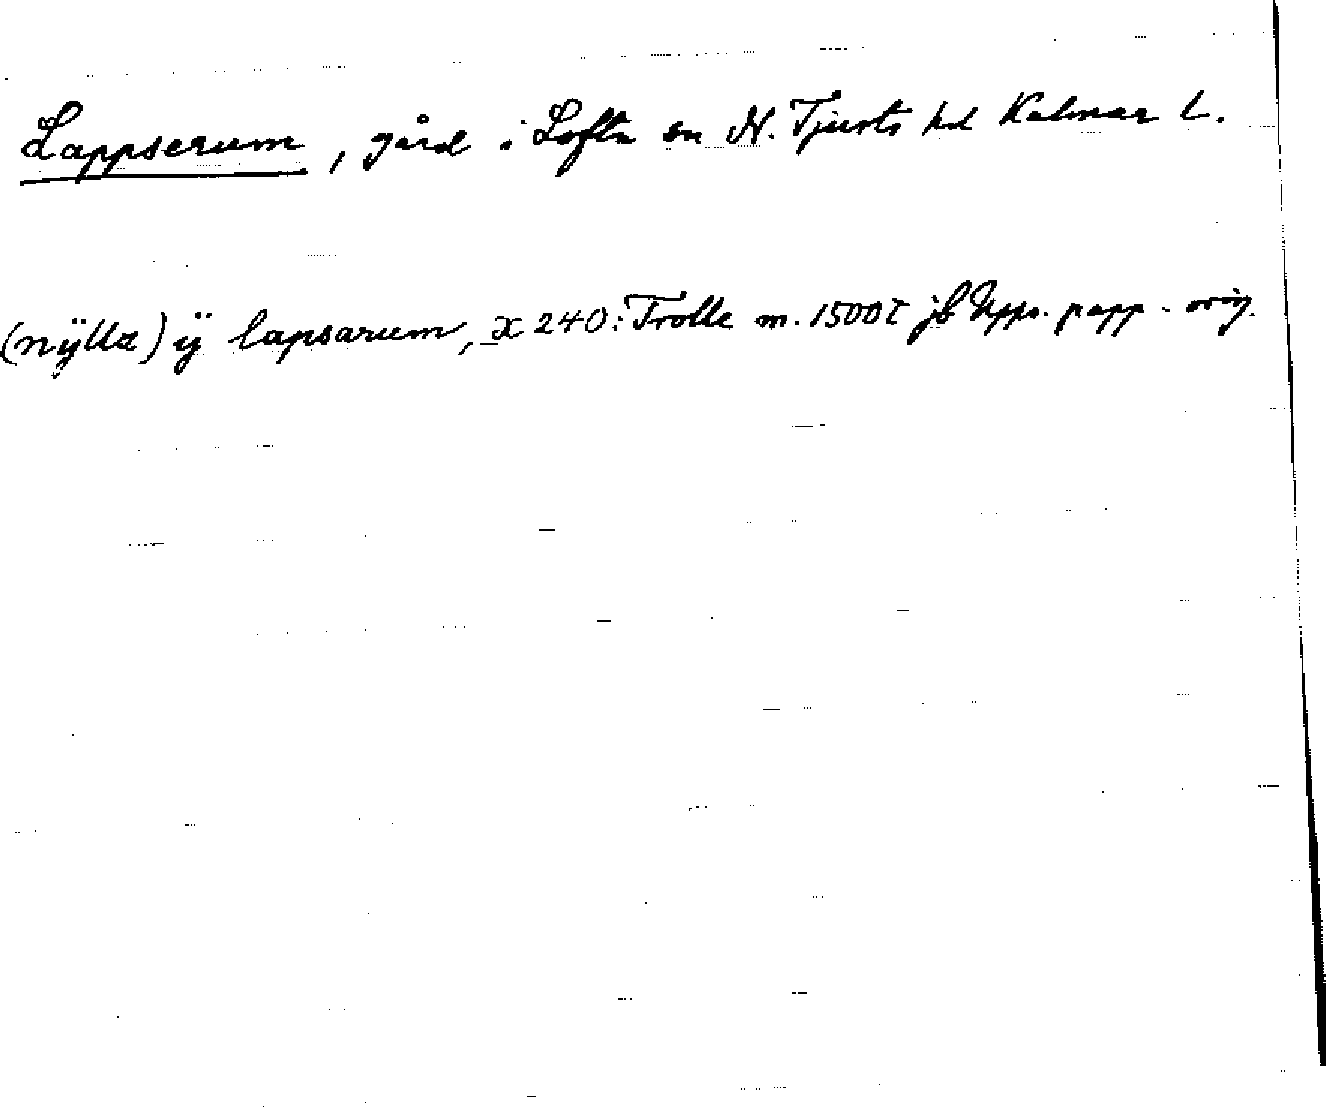 Lappserum, gård i Lofta sn N. Tjusts hd Kalmar l.
(nÿlla) ÿ lapsarum, x 240: Trolle m. 1500t jb Upps. papp. orig.